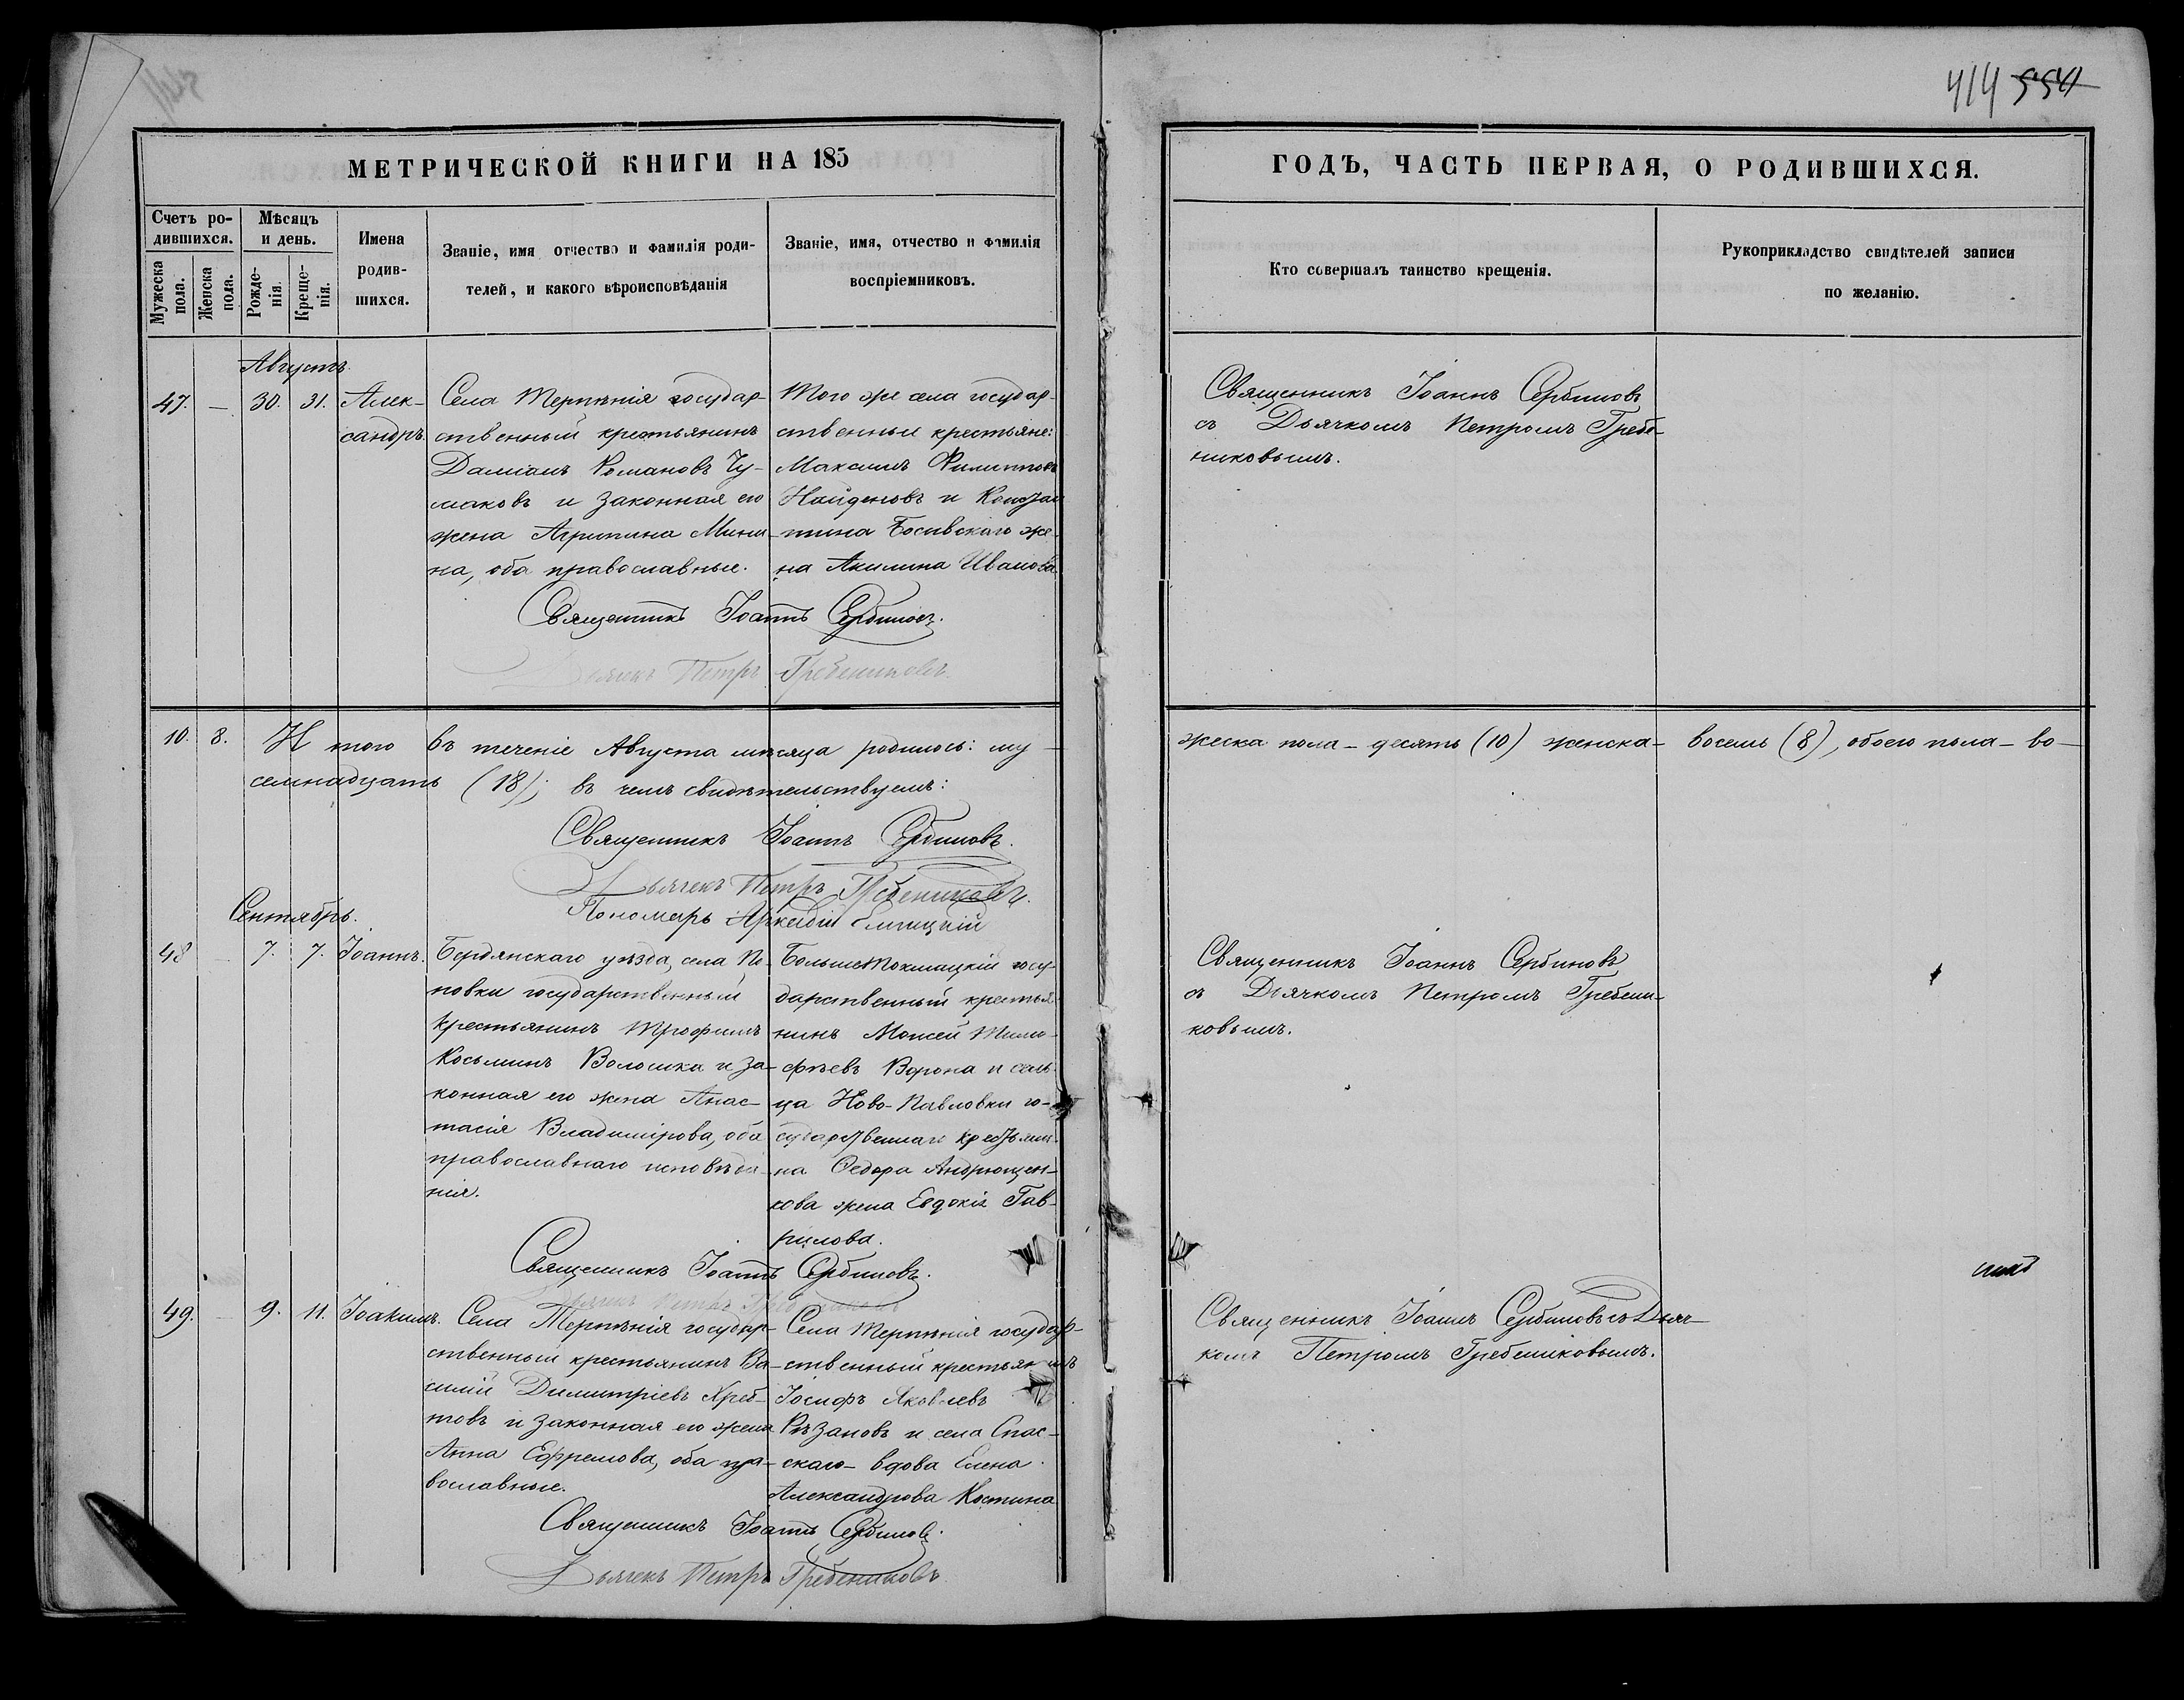 414 554
МЕТРИЧЕСКОЙ КНИГИ НА 185
ГОДЪ, ЧАСТЬ ПЕРВАЯ, О РОДИВШИХСЯ.
Счетъ ро-
дившихся.
Мужеска
пола.
Женска
пола.
Мѣсяцъ
и день.
Рожде-
нія.
Креще-
нія.
Имена
родив-
шихся.
Званіе, имя отчество и фамилія роди-
телей, и какого вѣроисповѣданія
Званіе, имя, отчество и фамилія
воспріемниковъ.
Кто совершалъ таинство крещенія.
Рукоприкладство свидѣтелей записи
по желанію.
Августъ.
47. — 30. 31. Алек-
сандръ.
Села Терпѣнія государ-
ственный крестьянинъ
Даміанъ Романовъ Чу-
маковъ и законная его
жена Агрипина Мини-
на, оба православные.
Того же села государ-
ственные крестьяне:
Максимъ Филипповъ
Найденовъ и Констан
тина жe-
на Акилина Иванова.
Священникъ Іоаннъ Сербиновъ
съ Дьячкомъ Петромъ Гребе-
никовымъ.
Священникъ Іоаннъ Сербиновъ.
Дьячекъ Петръ Гребениковъ.
10. 8. И того въ теченіе Августа мѣсяца родилось: му-
жеска пола - десять (10) женска - восемь (8), обоего пола - во-
семнадцать (18); въ чемъ свидѣтельствуемъ:
Священникъ Іоаннъ Сербиновъ.
Дьячекъ Петръ Гребениковъ.
Пономарь Аркадій
Сентябрь.
48 — 7. 7. Іоаннъ.
Бердянскаго уѣзда, села По-
повки государственный
крестьянинъ Трофимъ
Косьминъ Волошка и за-
конная его жена Анас-
тасія Владимірова, оба
православнаго исповѣда-
нія.
Больше Токмацкій госу-
дарственный крестья-
нинъ Моисей Тимо-
фѣевъ Ворона и сель-
ца Ново-Павловки го-
сударственнаго крестьяни-
на Ѳедора Андрющен-
кова жена Евдокія Гав-
рилова.
Священникъ Іоаннъ Сербиновъ
съ Дьячкомъ Петромъ Гребени-
ковымъ.
Священникъ Іоаннъ Сербиновъ.
Дьячекъ Петръ Гребениковъ
49. — 9. 11. Іоакимъ.
Села Терпѣнія государ-
ственный крестьянинъ Ва-
силій Димитріевъ Хреб-
товъ и законная его жена
Анна Ефремова, оба пра-
вославные.
Села Терпѣнія государ-
ственный крестьянинъ
Іосифъ Яковлевъ
Рѣзановъ и села Спас-
скаго - вдова Елена
Александрова Костина
Священникъ Іоаннъ Сербиновъ съ Дьяч-
комъ Петромъ Гребениковымъ.
Священникъ Іоаннъ Сербиновъ.
Дьячекъ Петръ Гребениковъ